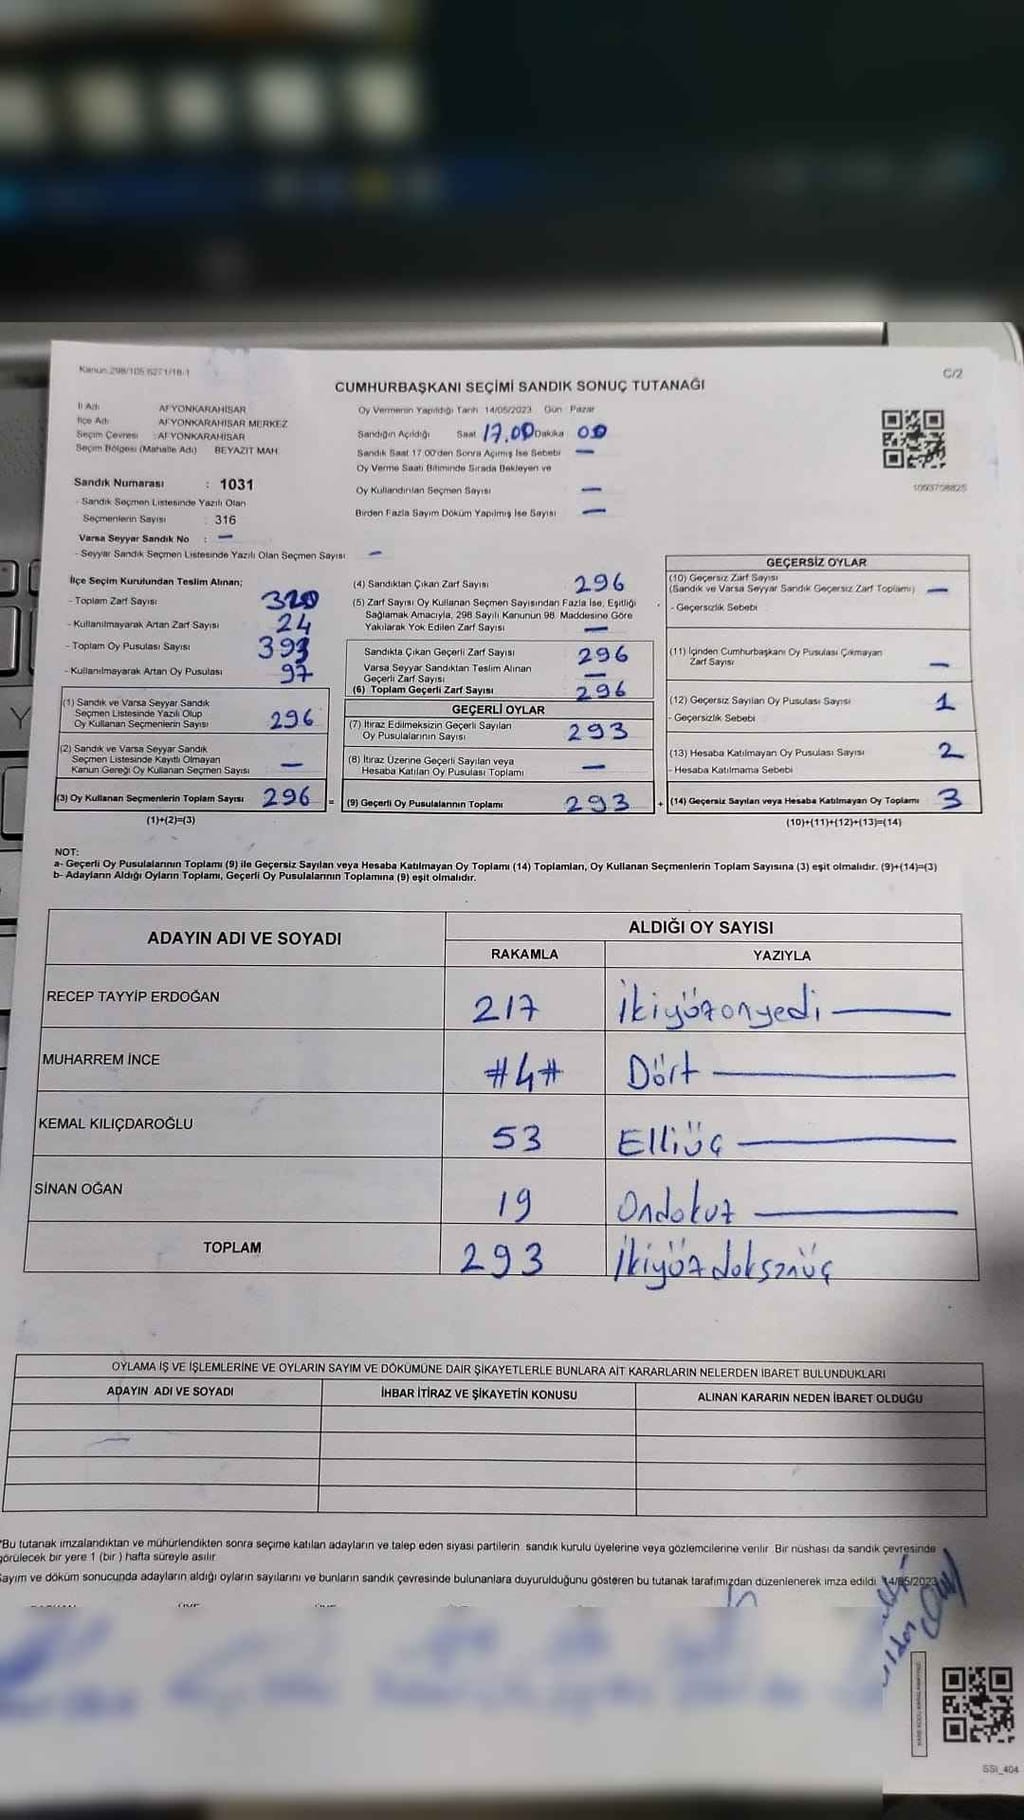 Kanun:298/105 6271/18-1
C/2
CUMHURBAŞKANI SEÇİMİ SANDIK SONUÇ TUTANAĞI
İl Adı : AFYONKARAHİSAR
İlçe Adı : AFYONKARAHİSAR MERKEZ
Seçim Çevresi : AFYONKARAHİSAR
Seçim Bölgesi (Mahalle Adı) BEYAZIT MAH.
Sandık Numarası : 1031
- Sandık Seçmen Listesinde Yazılı Olan
Seçmenlerin Sayısı : 316
Varsa Seyyar Sandık No : —
- Seyyar Sandık Seçmen Listesinde Yazılı Olan Seçmen Sayısı: —
Oy Vermenin Yapıldığı Tarih 14/05/2023 Gün Pazar
Sandığın Açıldığı Saat 17.00 Dakika 00
Sandık Saat 17.00'den Sonra Açılmış İse Sebebi —
Oy Verme Saati Bitiminde Sırada Bekleyen ve
Oy Kullandırılan Seçmen Sayısı —
Birden Fazla Sayım Döküm Yapılmış İse Sayısı —
1093708825
İlçe Seçim Kurulundan Teslim Alınan;
- Toplam Zarf Sayısı 320
- Kullanılmayarak Artan Zarf Sayısı 24
- Toplam Oy Pusulası Sayısı 393
- Kullanılmayarak Artan Oy Pusulası 97
(1) Sandık ve Varsa Seyyar Sandık
Seçmen Listesinde Yazılı Olup
Oy Kullanan Seçmenlerin Sayısı 296
(2) Sandık ve Varsa Seyyar Sandık
Seçmen Listesinde Kayıtlı Olmayan
Kanun Gereği Oy Kullanan Seçmen Sayısı —
(3) Oy Kullanan Seçmenlerin Toplam Sayısı 296 =
(1)+(2)=(3)
(4) Sandıktan Çıkan Zarf Sayısı 296
(5) Zarf Sayısı Oy Kullanan Seçmen Sayısından Fazla İse, Eşitliği
Sağlamak Amacıyla, 298 Sayılı Kanunun 98. Maddesine Göre
Yakılarak Yok Edilen Zarf Sayısı —
Sandıkta Çıkan Geçerli Zarf Sayısı 296
Varsa Seyyar Sandıktan Teslim Alınan
Geçerli Zarf Sayısı —
(6) Toplam Geçerli Zarf Sayısı 296
GEÇERLİ OYLAR
(7) İtiraz Edilmeksizin Geçerli Sayılan
Oy Pusulalarının Sayısı 293
(8) İtiraz Üzerine Geçerli Sayılan veya
Hesaba Katılan Oy Pusulası Toplamı —
(9) Geçerli Oy Pusulalarının Toplamı 293 +
GEÇERSİZ OYLAR
(10) Geçersiz Zarf Sayısı
(Sandık ve Varsa Seyyar Sandık Geçersiz Zarf Toplamı) —
- Geçersizlik Sebebi
(11) İçinden Cumhurbaşkanı Oy Pusulası Çıkmayan
Zarf Sayısı —
(12) Geçersiz Sayılan Oy Pusulası Sayısı 1
- Geçersizlik Sebebi
(13) Hesaba Katılmayan Oy Pusulası Sayısı 2
- Hesaba Katılmama Sebebi
(14) Geçersiz Sayılan veya Hesaba Katılmayan Oy Toplamı 3
(10)+(11)+(12)+(13)=(14)
NOT:
a- Geçerli Oy Pusulalarının Toplamı (9) ile Geçersiz Sayılan veya Hesaba Katılmayan Oy Toplamı (14) Toplamları, Oy Kullanan Seçmenlerin Toplam Sayısına (3) eşit olmalıdır. (9)+(14)=(3)
b- Adayların Aldığı Oyların Toplamı, Geçerli Oy Pusulalarının Toplamına (9) eşit olmalıdır.
ADAYIN ADI VE SOYADI ALDIĞI OY SAYISI
RAKAMLA YAZIYLA
RECEP TAYYİP ERDOĞAN 217 İkiyüzonyedi
MUHARREM İNCE #4# Dört
KEMAL KILIÇDAROĞLU 53 Elliüç
SİNAN OĞAN 19 Ondokuz
TOPLAM 293 İkiyüzdoksanüç
OYLAMA İŞ VE İŞLEMLERİNE VE OYLARIN SAYIM VE DÖKÜMÜNE DAİR ŞİKAYETLERLE BUNLARA AİT KARARLARIN NELERDEN İBARET BULUNDUKLARI
ADAYIN ADI VE SOYADI İHBAR İTİRAZ VE ŞİKAYETİN KONUSU ALINAN KARARIN NEDEN İBARET OLDUĞU
*Bu tutanak imzalandıktan ve mühürlendikten sonra seçime katılan adayların ve talep eden siyasi partilerin sandık kurulu üyelerine veya gözlemcilerine verilir. Bir nüshası da sandık çevresinde
görülecek bir yere 1 (bir ) hafta süreyle asılır.
Sayım ve döküm sonucunda adayların aldığı oyların sayılarını ve bunların sandık çevresinde bulunanlara duyurulduğunu gösteren bu tutanak tarafımızdan düzenlenerek imza edildi. 14/05/2023
SSI_404